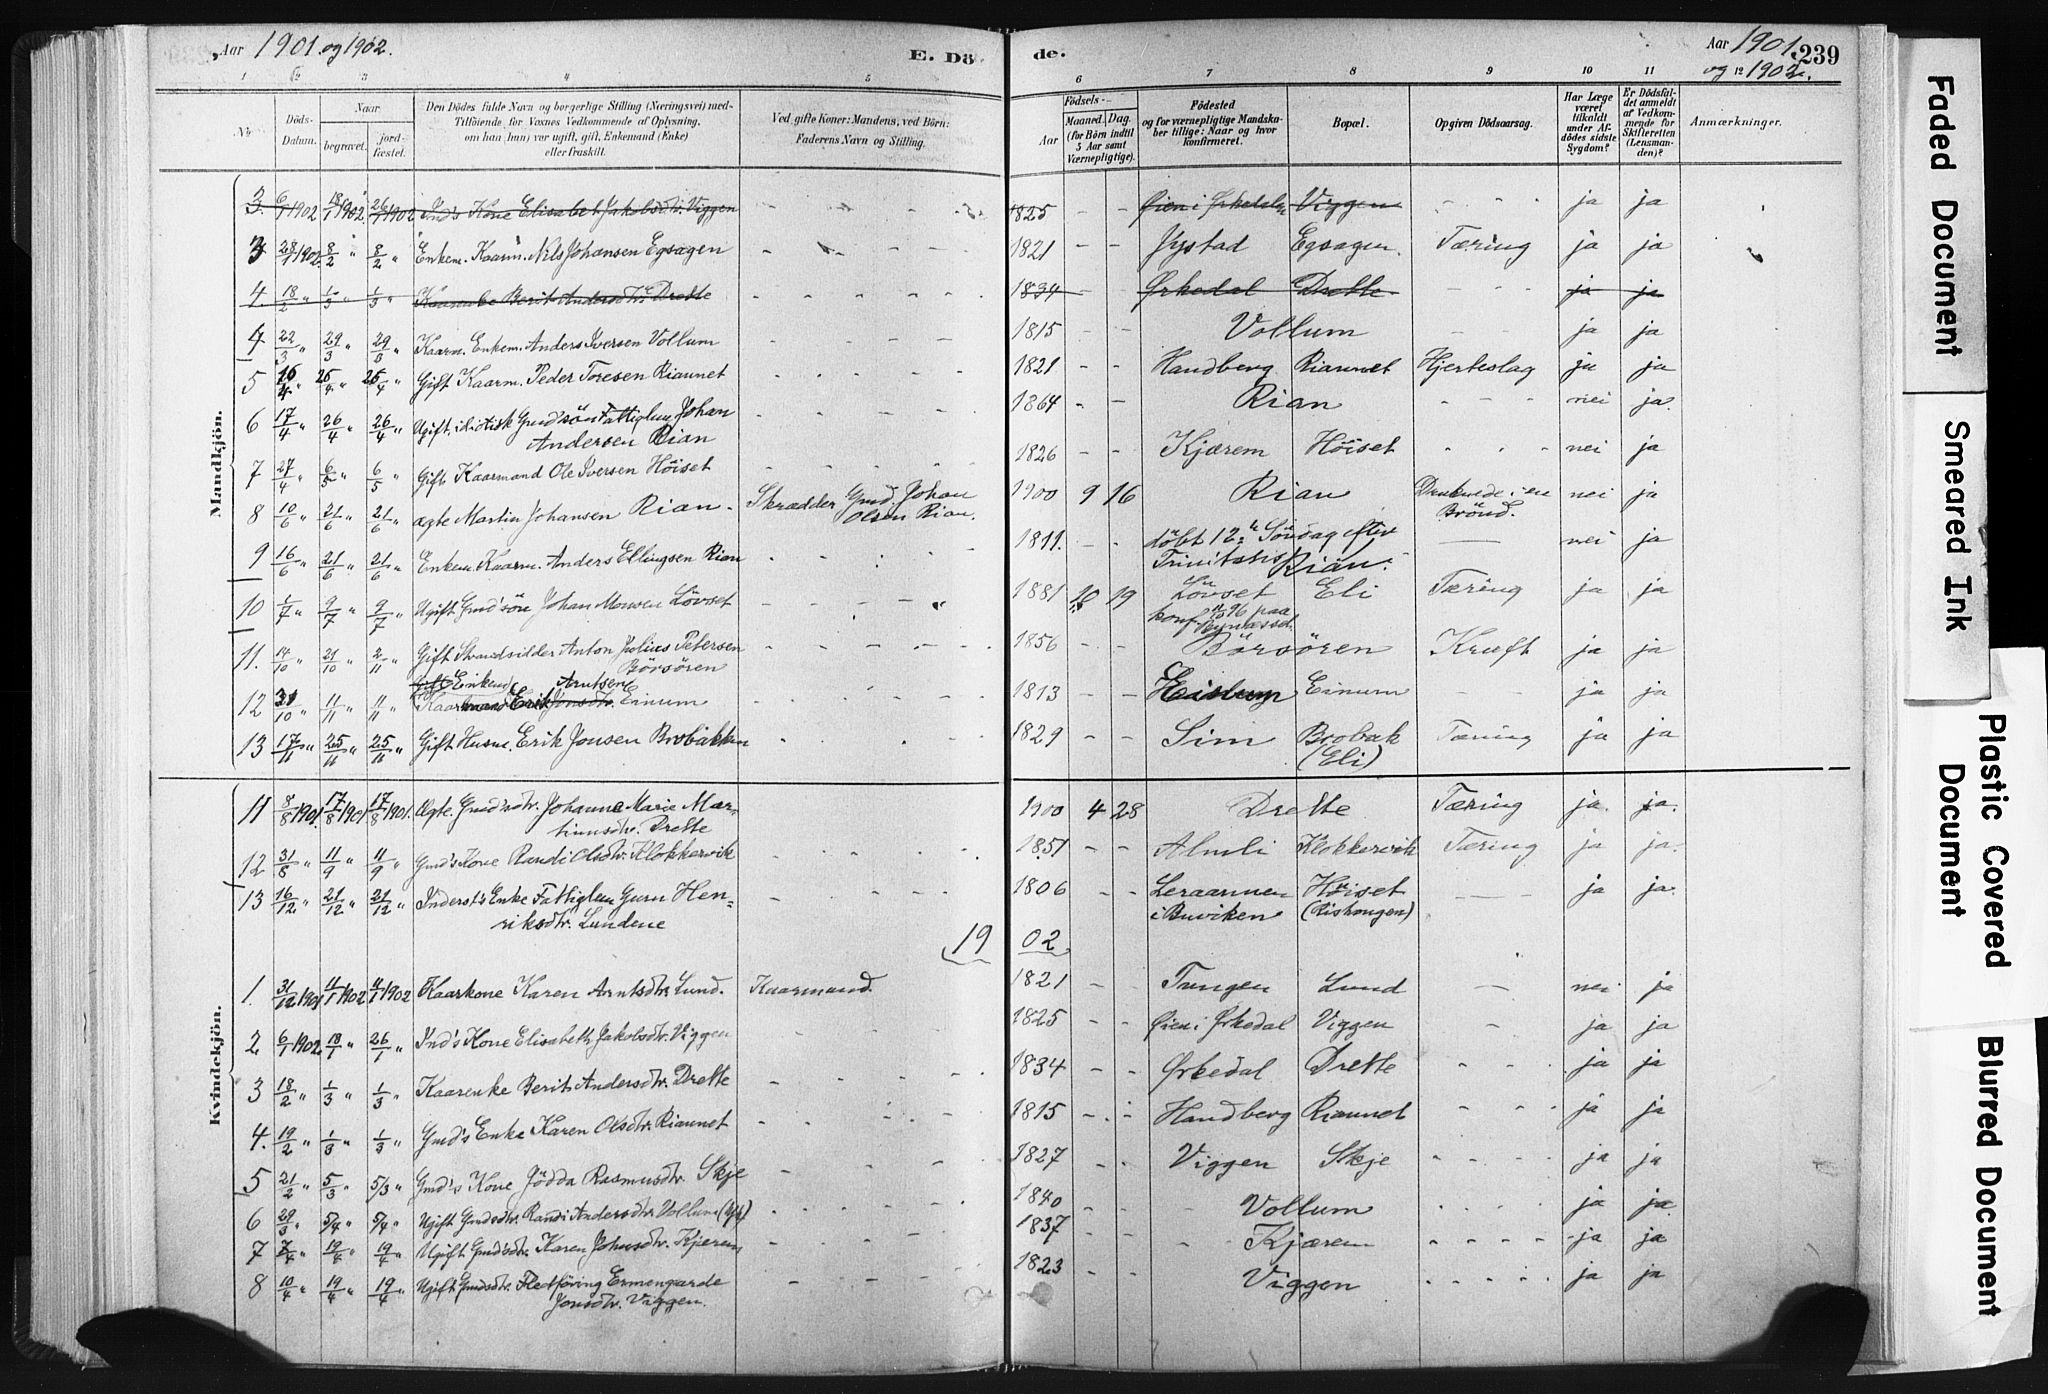 Aar 1901 og 1902. E. Dö de. Aar 1901 239
og 1902.
1 2 3 4 5 6 7 8 9 10 11 12
No. Döds-Datum. Naar begravet. jord-fæstet. Den Dödes fulde Navn og borgerlige Stilling (Næringsvei) med-Tilföiende for Voxnes Vedkommende af Oplysning, om han (hun) var ugift, gift, Enkemand (Enke) eller fraskilt. Ved gifte Koner: Mandens, ved Börn: Faderens Navn og Stilling. Födsels- Aar Maaned. Dag. (for Börn indtil 5 Aar samt Værnepligtige). Födested og for værnepligtige Mandska-ber tillige: Naar og hvor konfirmeret. Bopæl. Opgiven Dödsaarsag. Har Læge været tilkaldt under Af-dödes sidste Sygdom? Er Dödsfal-det anmeldt af Vedkom-mende for Skifteretten (Lensman-den)? Anmærkninger.
Mandkjön.
3. 6/1 1902 18/1 1902 26/1 1902 Ind's Kone Elisabet Jakobsdtr. Viggen 1825 - - Öien i Ørkedalen Viggen ja ja
3 28/1 1902 8/2 " 8/2 " Enkem. Kaarm. Nils Johansen Egsagen 1821 - - Jystad Egsagen Tæring ja ja
4 18/2 " 1/3 " 1/3 " Kaarenke Berit Andersdtr. Drette 1834 Ørkedal Drette ja ja
4 22/3 " 29/3 " 29/3 " Kaarm. Enkem. Anders Iversen Vollum 1815 - - Vollum ja ja
5 16/4 " 25/4 " 25/4 " Gift Kaarm. Peder Toresen Riaunet 1821 - - Handberg Riaunet Hjerteslag ja ja
6 17/4 " 26/4 " 26/4 " Ugift. idiotisk Gmdsön Fattiglem Johan Andersen Rian 1864 - - Rian nei ja.
7 27/4 " 6/5 " 6/5 " Gift Kaarmand Ole Iversen Höiset 1826 - - Kjærem Höiset nei ja
8 10/6 " 21/6 " 21/6 " ægte Martin Johansen Rian. Skrædder Gmd. Johan Olsen Rian. 1900 9 16 Rian Druknede i en Brönd. nei ja
9 16/6 " 21/6 " 21/6 " Enkem. Kaarm. Anders Ellingsen Rian 1811. - - döbt 12te Söndag efter Trinitatis Rian. nei ja
10 1/7 " 9/7 " 9/7 " Ugift Gmd'sön Johan Monsen Lövset 1881 10 19 Lövset konf. 96 paa Bynæsset. Eli Tæring ja ja
11. 14/10 " 21/10 " 2/11 " Gift Strandsidder Anton Julius Petersen Börsören 1856 - - Börsören Kræft ja ja
12 31/10 " 11/11 " 11/11 " Gift Enkem Kaarmand Erik Arntsen Jönsdtr. Einum 1813 - - Einum ja ja
13 17/11 " 25/11 " 25/11 " Gift Husm. Erik Jonsen Brobakken 1829 - - Sim Brobak (Eli) Tæring ja ja
Kvindekjön.
11 8/8 1901. 17/8 1901. 17/8 1901. Ægte. Gmd'sdtr. Johanna Marie Mar-tinusdtr. Drette 1900 4 28 Drette Tæring ja. ja.
12 31/8 " 11/9 " 11/9 " Gmd's Kone Randi Olsdtr. Klokkervik 1851 - - Almli Klokkervik Tæring ja ja.
13 16/12 " 21/12 " 21/12 " Inderst's Enke Fattiglem Guru Hen-riksdtr. Lundene 1806 - - Leraamnen i Buviken Höiset (Rishaugen) ja ja.
1902
1. 31/12 1901 11/1 1902 11/1 1902 Kaarkone Karen Arntsdtr. Lund. Kaarmand. 1821 - - Tangen Lund nei ja
2. 6/1 1902. 18/1 " 26/1 " Ind's Kone Elisabeth Jakobsdtr. Viggen 1825 - - Öien i Ørkedal Viggen ja ja
3 18/2 " 1/3 " 1/3 " Kaarenke Berit Andersdtr. Drette 1834 - - Ørkedal Drette ja ja
4. 19/2 " 1/3 " 1/3 " Gmd's Enke Karen Olsdtr. Riaunet 1815 - - Handberg Riaunet ja ja
5 21/2 " 5/3 " 5/3 " Gmd's Kone Jödda Rasmusdtr. Skje 1827 - - Viggen Skje ja ja
6 29/3 " 5/4 " 5/4 " Ugift Gmdsdtr. Randi Andersdtr. Vollum 1840 - - Vollum ja ja
7 7/4 " 19/4 " 19/4 " Ugift Gmd'sdtr. Karen Johnsdtr. Kjærem 1837 - - Kjærem ja ja
8 10/4 " 19/4 " 19/4 " Ugift Gmdsdtr. Fledföring Ermengarde Jonsdtr. Viggen. 1823 - - Viggen ja ja
Faded Document
Smeared Ink
Plastic Covered Document
Blurred Document